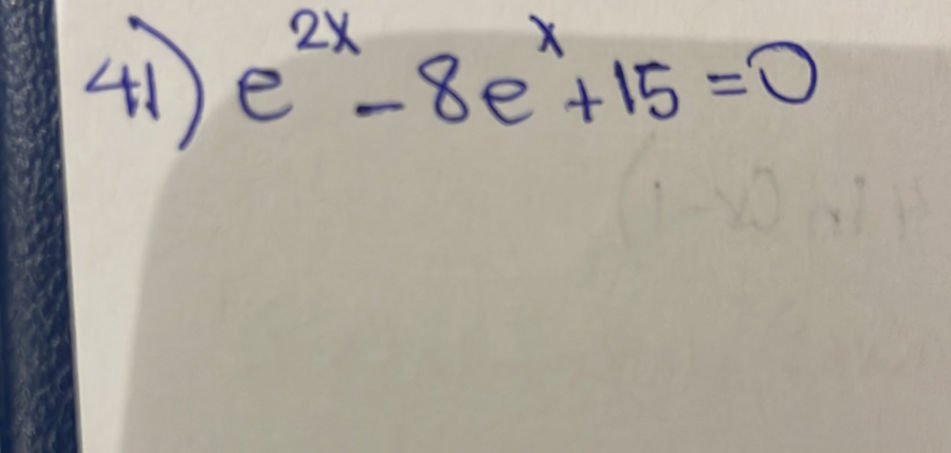 41) e^{2x} - 8e^{x} + 15 = 0